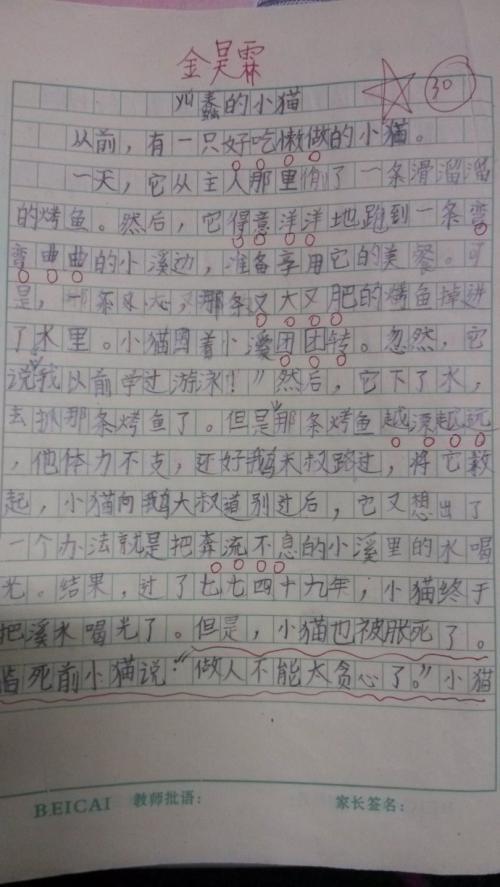 金昊霖
30
蠢的小猫
从前，有一只好吃懒做的小猫。
一天，它从主人那里偷了一条滑溜溜
的烤鱼。然后，它得意洋洋地跑到一条弯
弯曲曲的小溪边，准备享用它的美餐。可
是，一不小心，那条又大又肥的烤鱼掉进
了水里。小猫围着小溪团团转。忽然，它
说“我以前学过游泳！”然后，它下了水，
去抓那条烤鱼了。但是那条烤鱼越漂越远
，他体力不支，还好鹅大叔路过，将它救
起，小猫向鹅大叔道别过后，它又想出了
一个办法就是把奔流不息的小溪里的水喝
光。结果，过了七七四十九年，小猫终于
把溪水喝光了。但是，小猫也被胀死了。
临死前小猫说：“做人不能太贪心了。”小猫
BEICAI 教师批语： 家长签名：